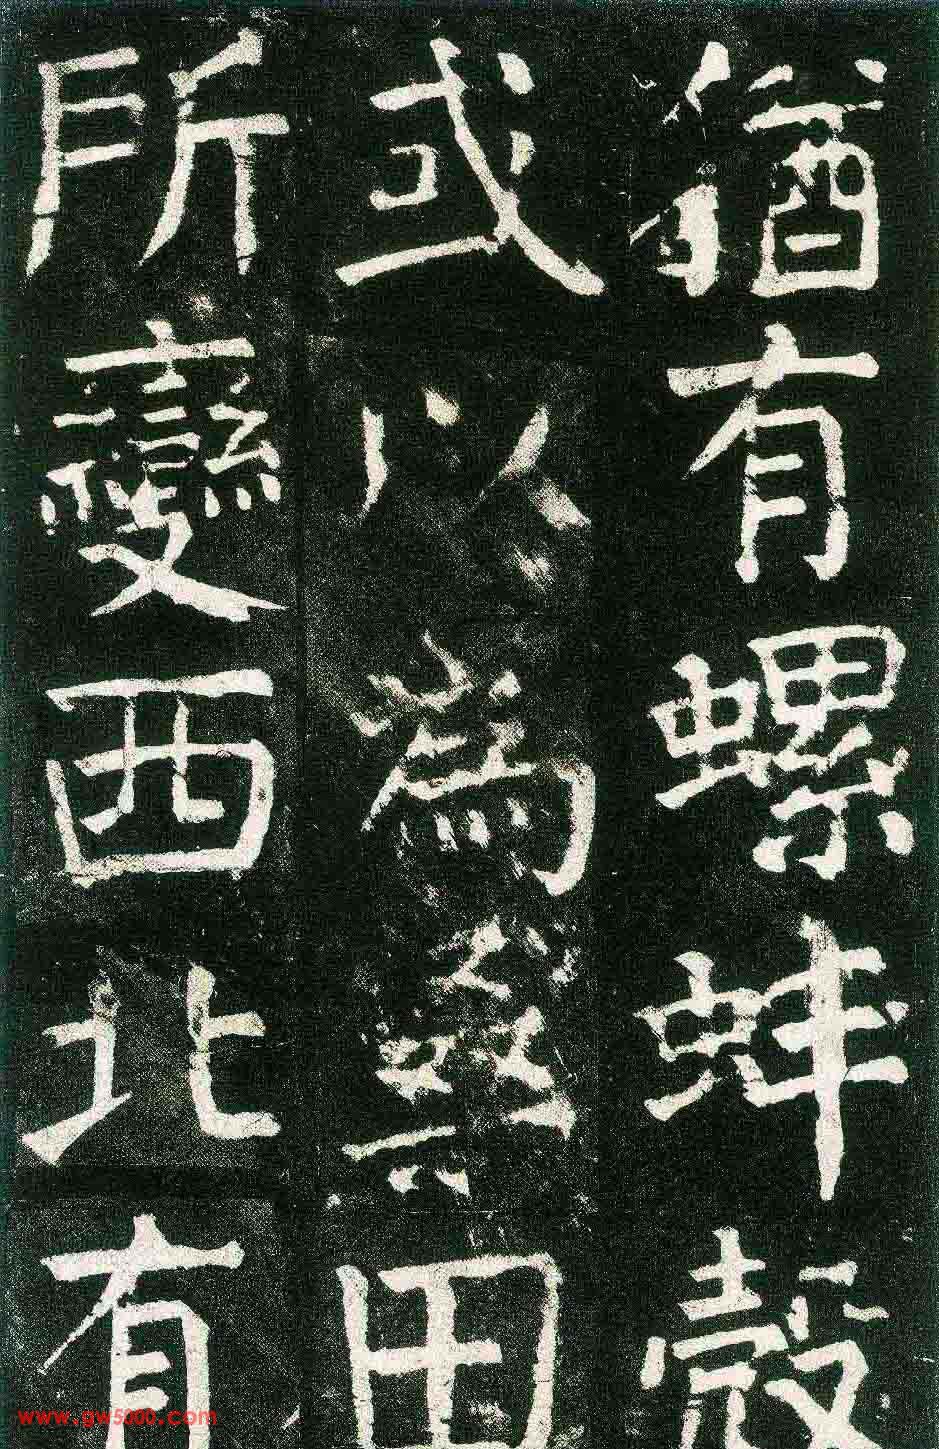 猶有螺蚌殼
或以為桑田
所變西北有
www.gw5000.com